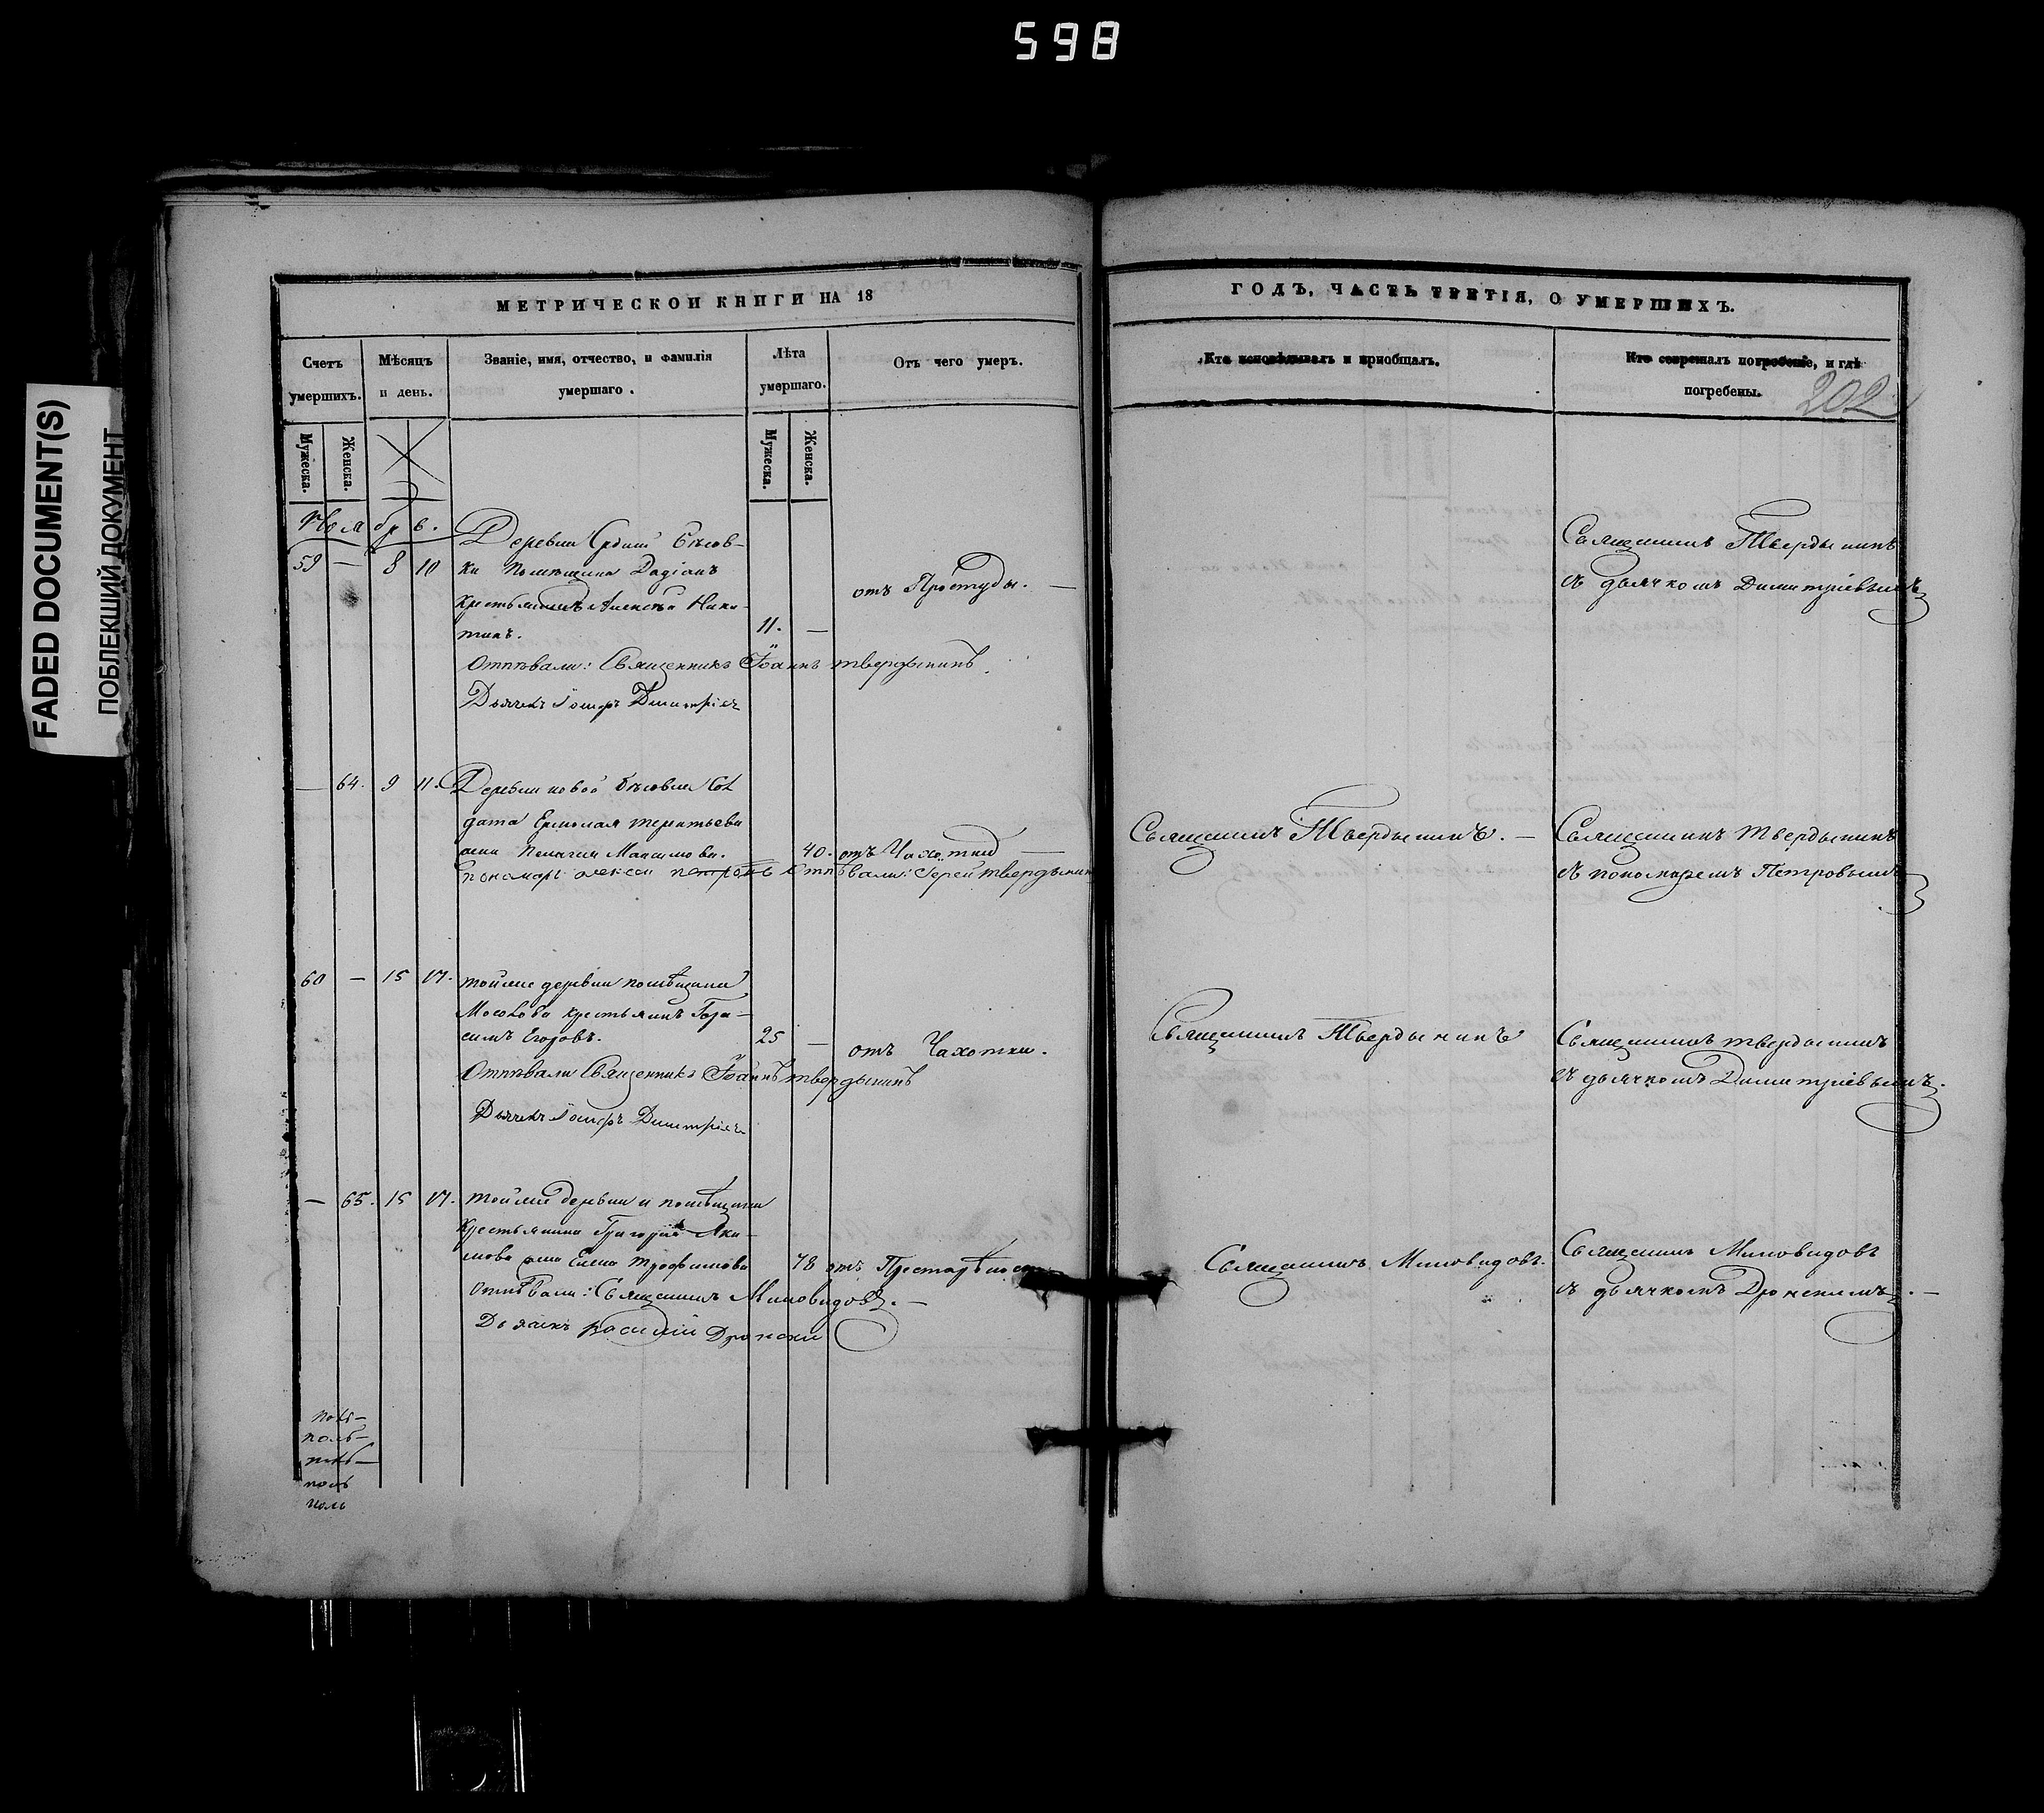 598
FADED DOCUMENT(S)
ПОБЛЕКШИЙ ДОКУМЕНТ
МЕТРИЧЕСКОЙ КНИГИ НА 18
Счетъ умершихъ.
Мѣсяцъ и день.
Званіе, имя, отчество, и фамилія умершаго.
Лѣта умершаго.
Отъ чего умеръ.
Мужеска.
Женска.
Мужеска.
Женска.
Ноября.
59 — 8 10
Деревни Средней Бѣсов-
ки помѣщика Дадіанъ
крестьянинъ Алексѣй Ники-
тинъ.
11. —
отъ Простуды. —
Отпѣвали: Священникъ Іоаннъ Твердынинъ.
Дьячекъ Димитріевъ
— 64. 9 11.
Деревни новой Бѣсовки Сол
дата Ермолая Терентьева
жена Пелагия Максимова.
40. отъ Чахотки —
пономарь алексей петровъ Отпѣвали: Іерей твердынин
60 — 15 17.
тойже деревни помѣщика
Мосолова крестьянинъ Гера-
симъ Егоровъ.
25 —
отъ Чахотки.
Отпѣвали Священникъ Іоаннъ твердынинъ
Дьячекъ Димитріевъ
— 65. 15 17.
тойже деревни и помѣщика
крестьянина Григорія Яки-
мова жена Елена Трофимова
78 отъ Престарѣлости
отпѣвали: Священникъ Миловидовъ. —
Дьячекъ василій Дронски
ГОДЪ, ЧАСТЬ ТРЕТІЯ, О УМЕРШИХЪ.
Кто исповѣдывалъ и пріобщалъ.
Кто совершалъ погребеніе, и гдѣ погребены.
202
Священникъ Твердынинъ
съ дьячкомъ Димитріевымъ
Священникъ Твердынинъ. —
Священникъ Твердынинъ
съ пономаремъ Петровымъ
Священникъ Твердынинъ
Священникъ твердынинъ
съ дьячкомъ Димитріевымъ.
Священникъ Миловидовъ.
Священникъ Миловидовъ
съ дьячкомъ Дронскимъ. —